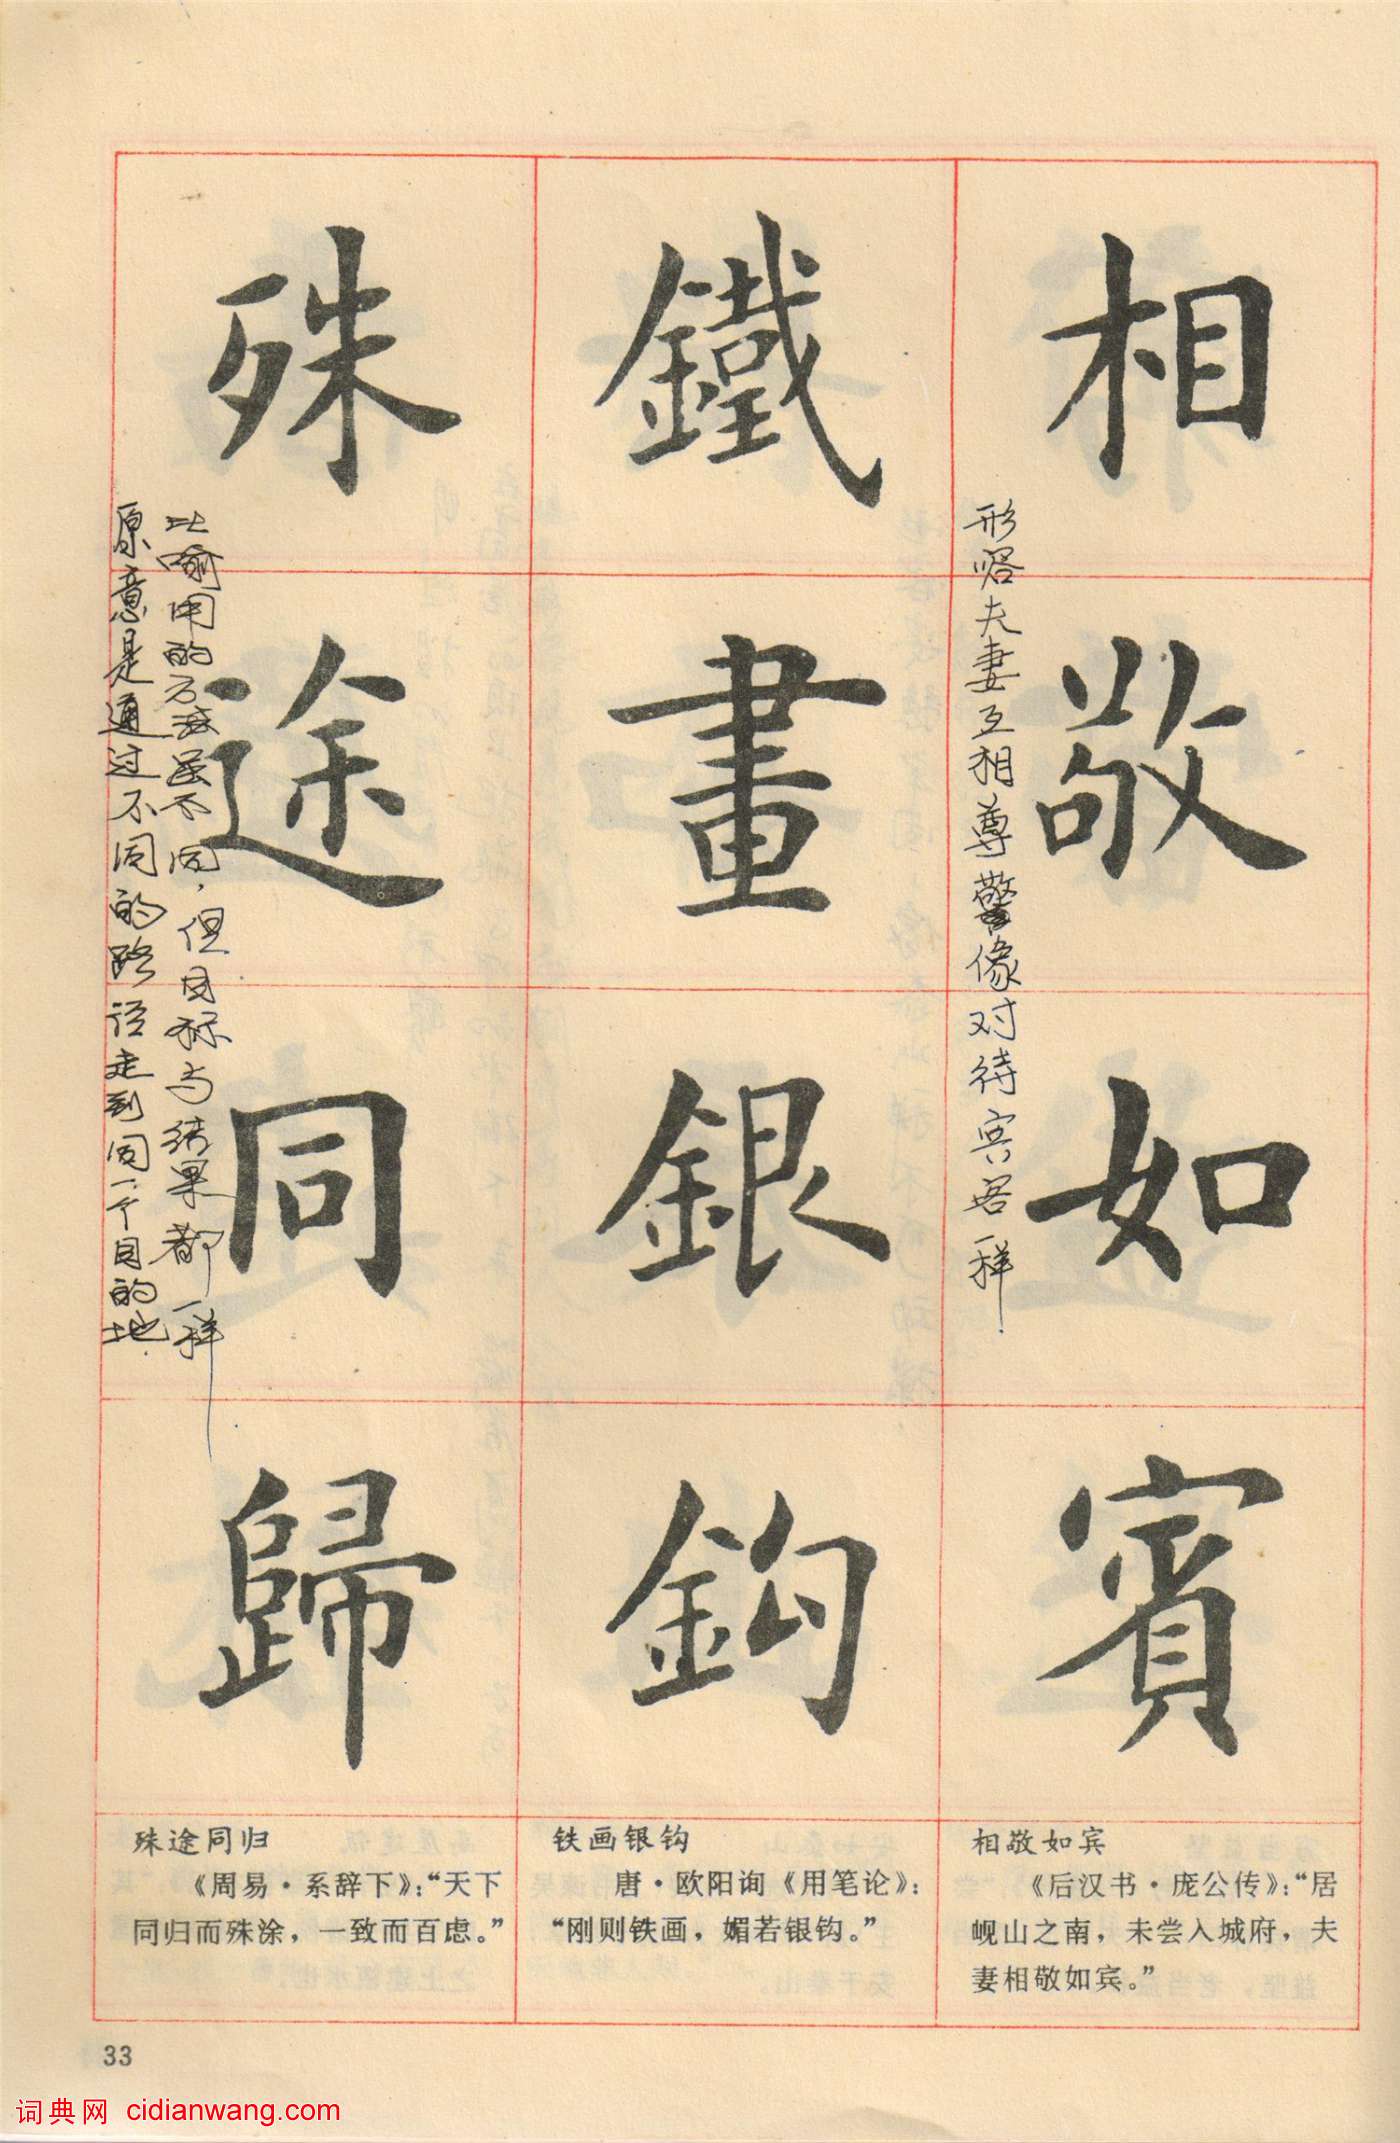 相敬如賓
形容夫妻互相尊敬像对待宾客一样
鐵畫銀鈎
殊途同歸
原意是通过不同的路径走到同一个目的地.
比喻用的方法虽不同，但目标与结果都一样
相敬如宾
《后汉书·庞公传》：“居
岘山之南，未尝入城府，夫
妻相敬如宾。”
铁画银钩
唐·欧阳询《用笔论》：
“刚则铁画，媚若银钩。”
殊途同归
《周易·系辞下》：“天下
同归而殊涂，一致而百虑。”
33
词典网 cidianwang.com